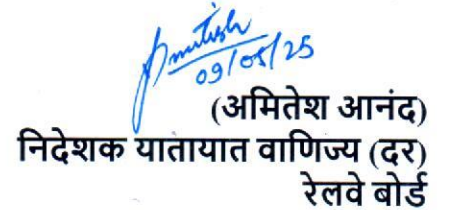 Amitesh
09/05/25
(अमितेश आनंद)
निदेशक यातायात वाणिज्य (दर)
रेलवे बोर्ड